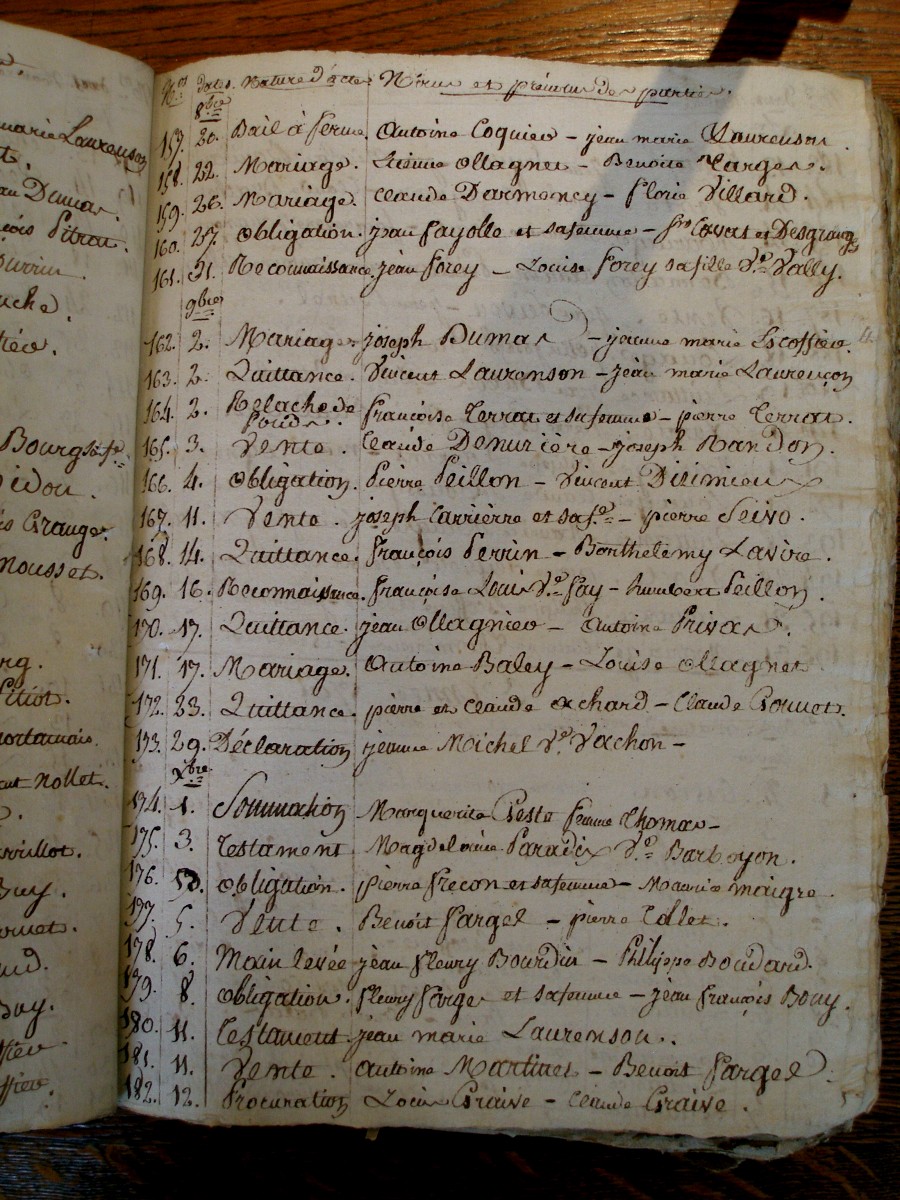 marie Laurenson
t.
au Dumas.
çois Pitrat.
Perrin.
uche.
Bourg
idou.
is Grange.
mousset.
ng.
Pitiot.
Nollet.
Buy.
Buy.
Nos dates. Nature d'actes Noms et prénoms des parties.
8bre
157. 20. Bail à ferme. Antoine Coquier – jean marie Laurenson.
158. 22. Mariage. Etienne Ollagner – Benoite Farges.
159. 26. Mariage. Claude Darmency – florie Villard.
160. 27. Obligation. jean fayolle et sa femme – Cavat et Desgranges
161. 31. Reconnaissance. jean forey – Louise forey sa fille Ve. Vally.
9bre
162. 2. Mariage. joseph Dumas – jeanne marie Escoffier.
163. 2. Quittance. Vincent Laurenson – jean marie Laurençon
164. 2. Relache de fonds. françoise Terrat et sa femme – pierre Terrat.
165. 3. Vente. Claude Denuzière – joseph Randon.
166. 4. Obligation. Pierre Peillon – Vincent
167. 11. Vente. joseph Carrierre et sa fe. – pierre Seivo.
168. 14. Quittance. françois Perrin – Barthelemy Lavire.
169. 16. Reconnaissance. françoise Louis Ve. fay – humbert Peillon.
170. 17. Quittance. jean Ollagnier – Antoine Privas.
171. 17. Mariage. Antoine Baley – Louise Ollagner
172. 23. Quittance. pierre et Claude Achard – Claude
173. 29. Déclaration jeanne Michel Ve. Vachon –
Xbre
174. 1. Sommation Marguerite Peste femme Thomas –
175. 3. Testament. Magdeleine Paradix Ve. Barboyon.
176. Obligation. pierre frecon et sa femme – Marie maigre.
177. 5. Vente. Benoit farget – pierre Collet.
178. 6. Main levée jean fleury Bourdin – Philippe Boudard.
179. 8. Obligation. fleury farge et sa femme – jean françois Bouy.
180. 11. Testament. jean marie Laurenson..
181. 11. Vente. Antoine Martinet – Benoit farget.
182. 12. Procuration Louis Graive – Claude Graive.